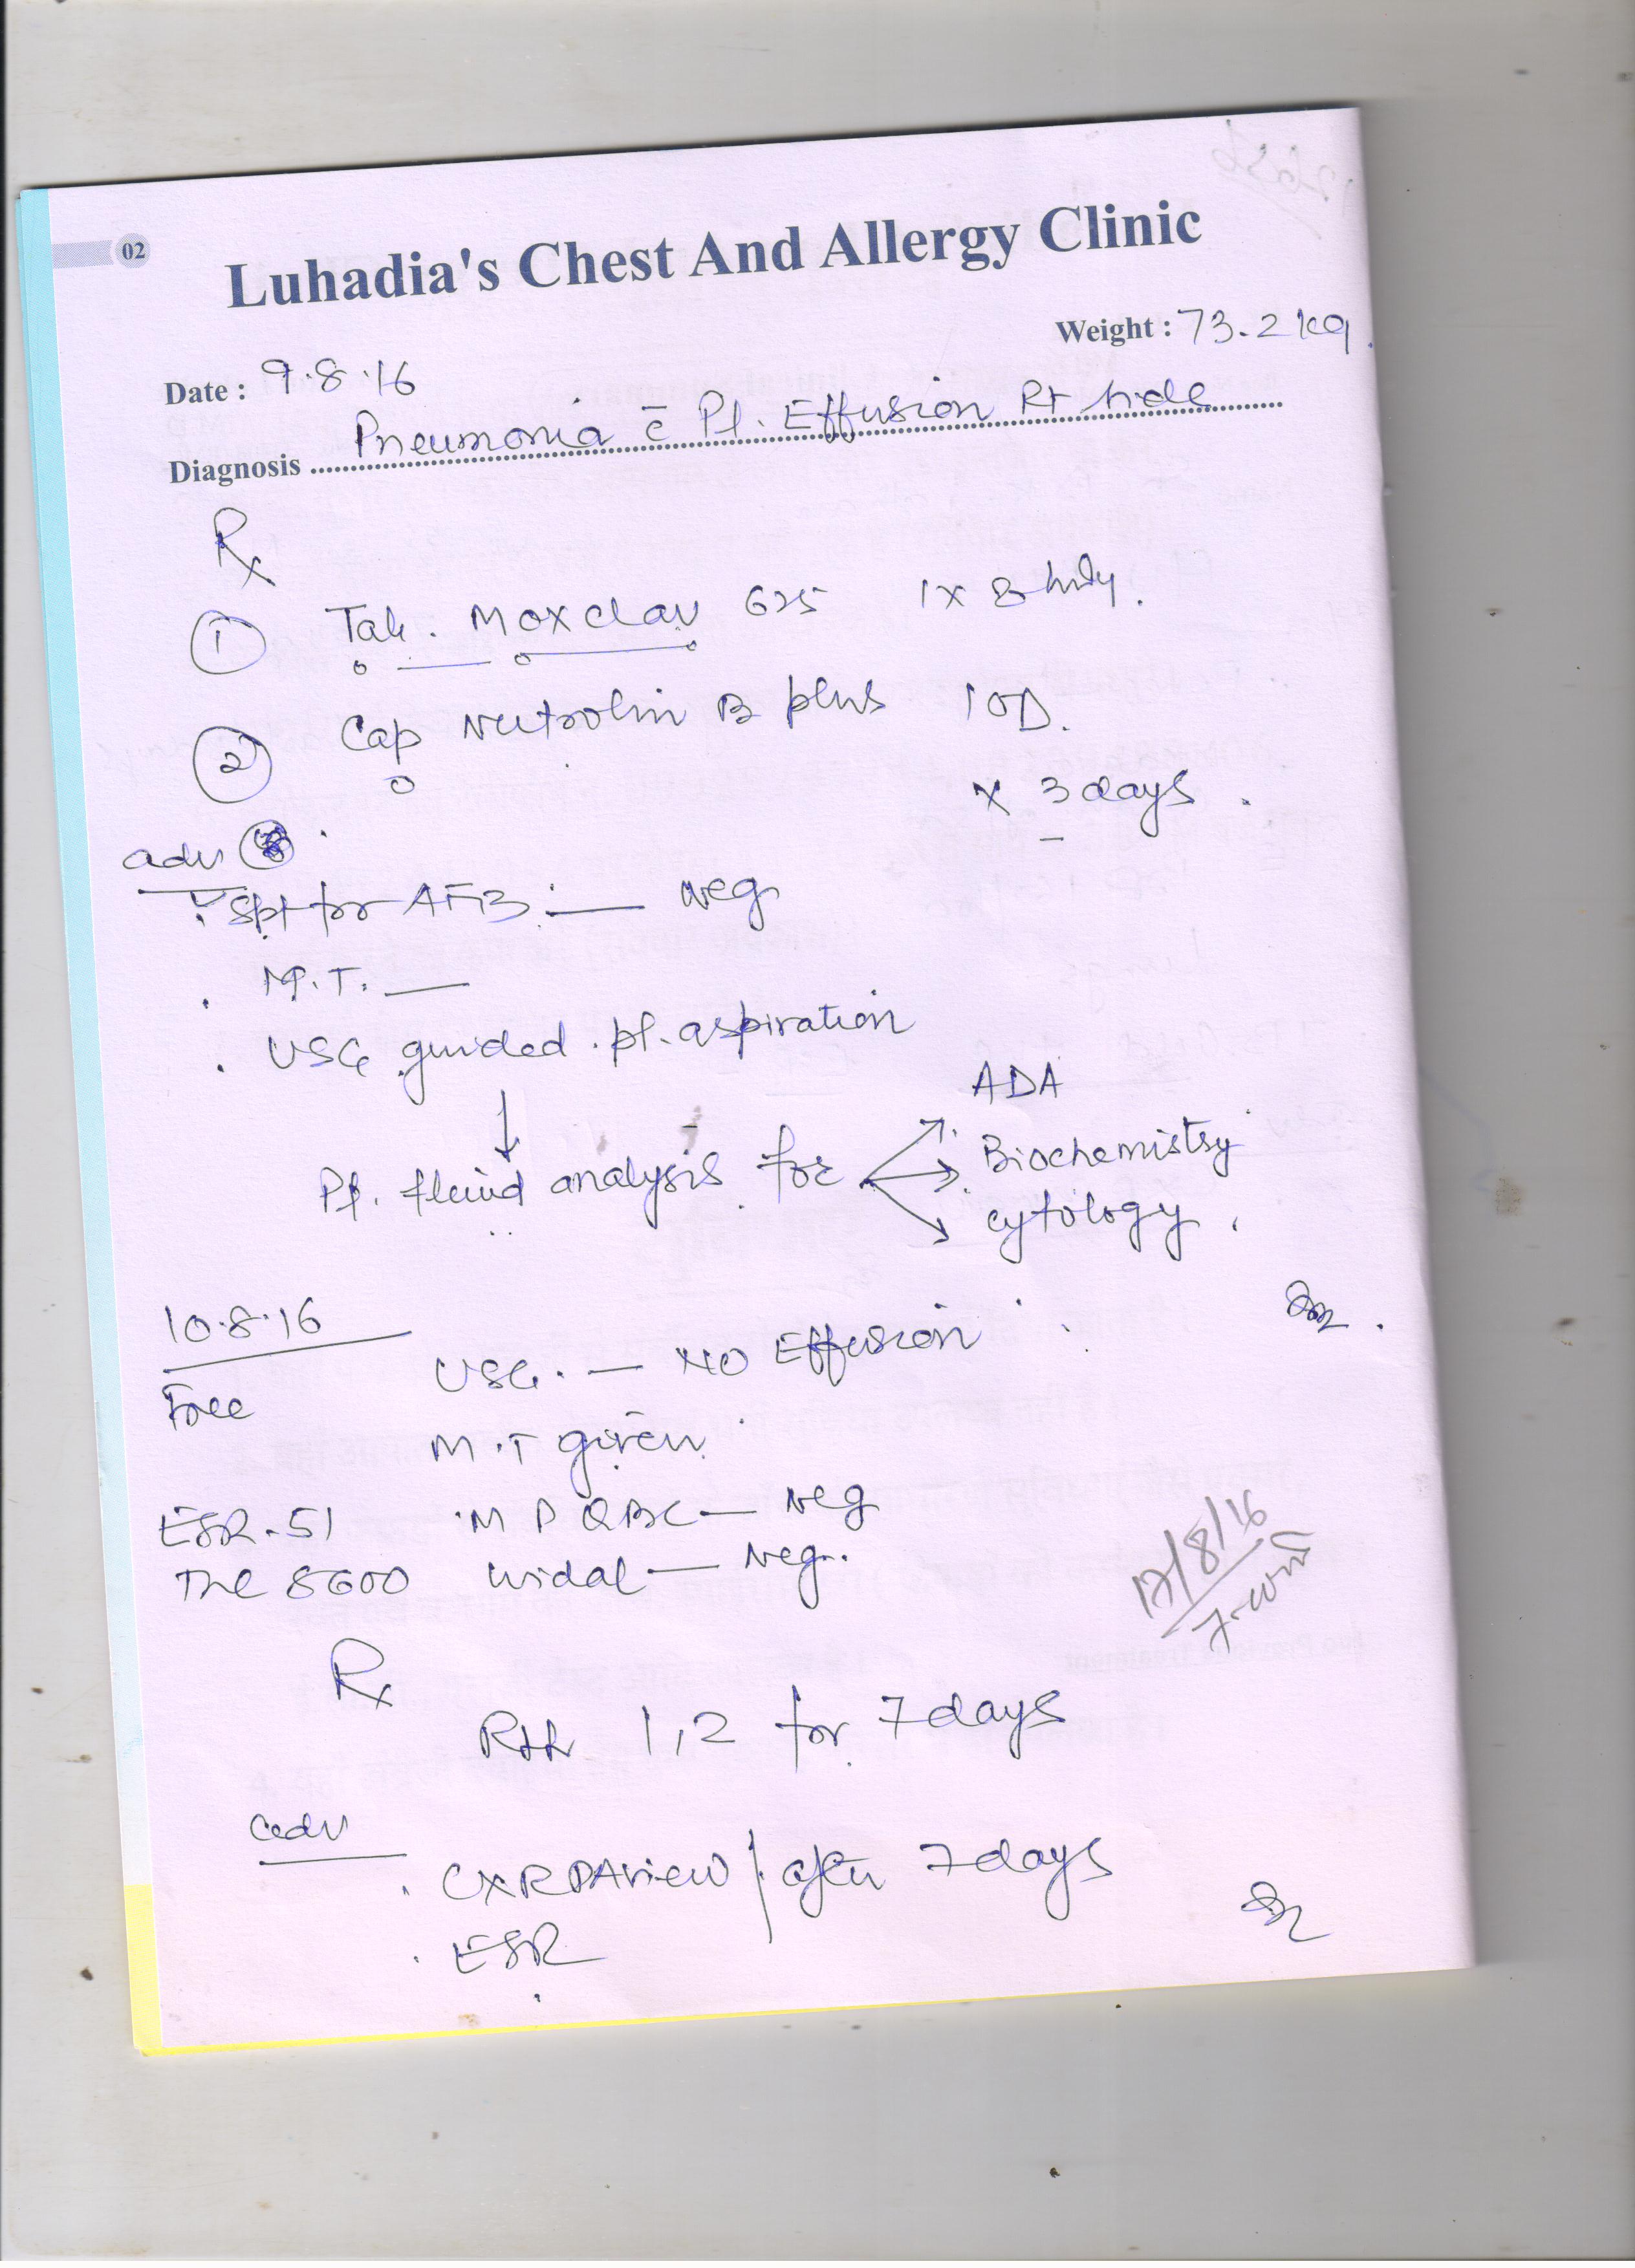 02
Luhadia's Chest And Allergy Clinic
Weight : 73.2 kg.
Date : 9.8.16
Diagnosis Pneumonia c̄ Pl. Effusion Rt side
Rx
① Tab. Moxclav 625 1 x 8 hrly.
② Cap Nutrolin B plus 1 OD.
x 3 days.
adv
. Spt for AFB :— Neg
. M.T. —
. USG guided pl. aspiration
↓
ADA
Pl. fluid analysis for → Biochemistry
cytology.
10.8.16
USG. — NO Effusion
Free
M.T given
ESR - 51 MP QBC — Neg
TLC 8600 Widal — Neg.
17/8/16
Rx
Rpt 1,2 for 7 days
adv
. CXR PA view / after 7 days
. ESR